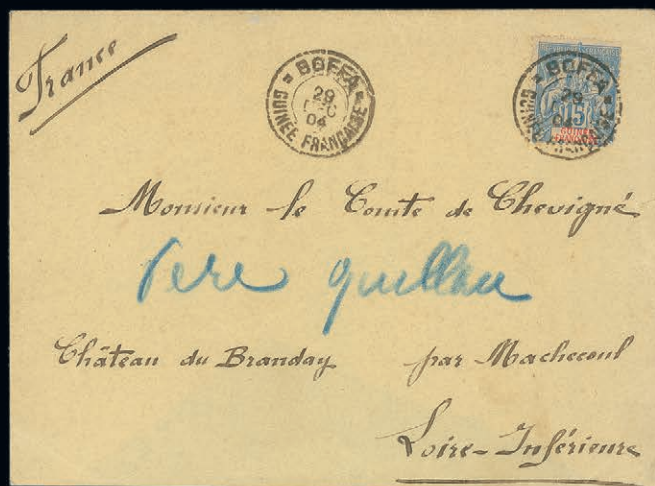 France
BOFFA
29
DEC
04
GUINÉE FRANÇAISE
BOFFA
29
04
GUINÉE FRANÇAISE
15
GUINÉE
Monsieur le Comte de Chevigné
Père
Château du Branday par Machecoul
Loire-Inférieure